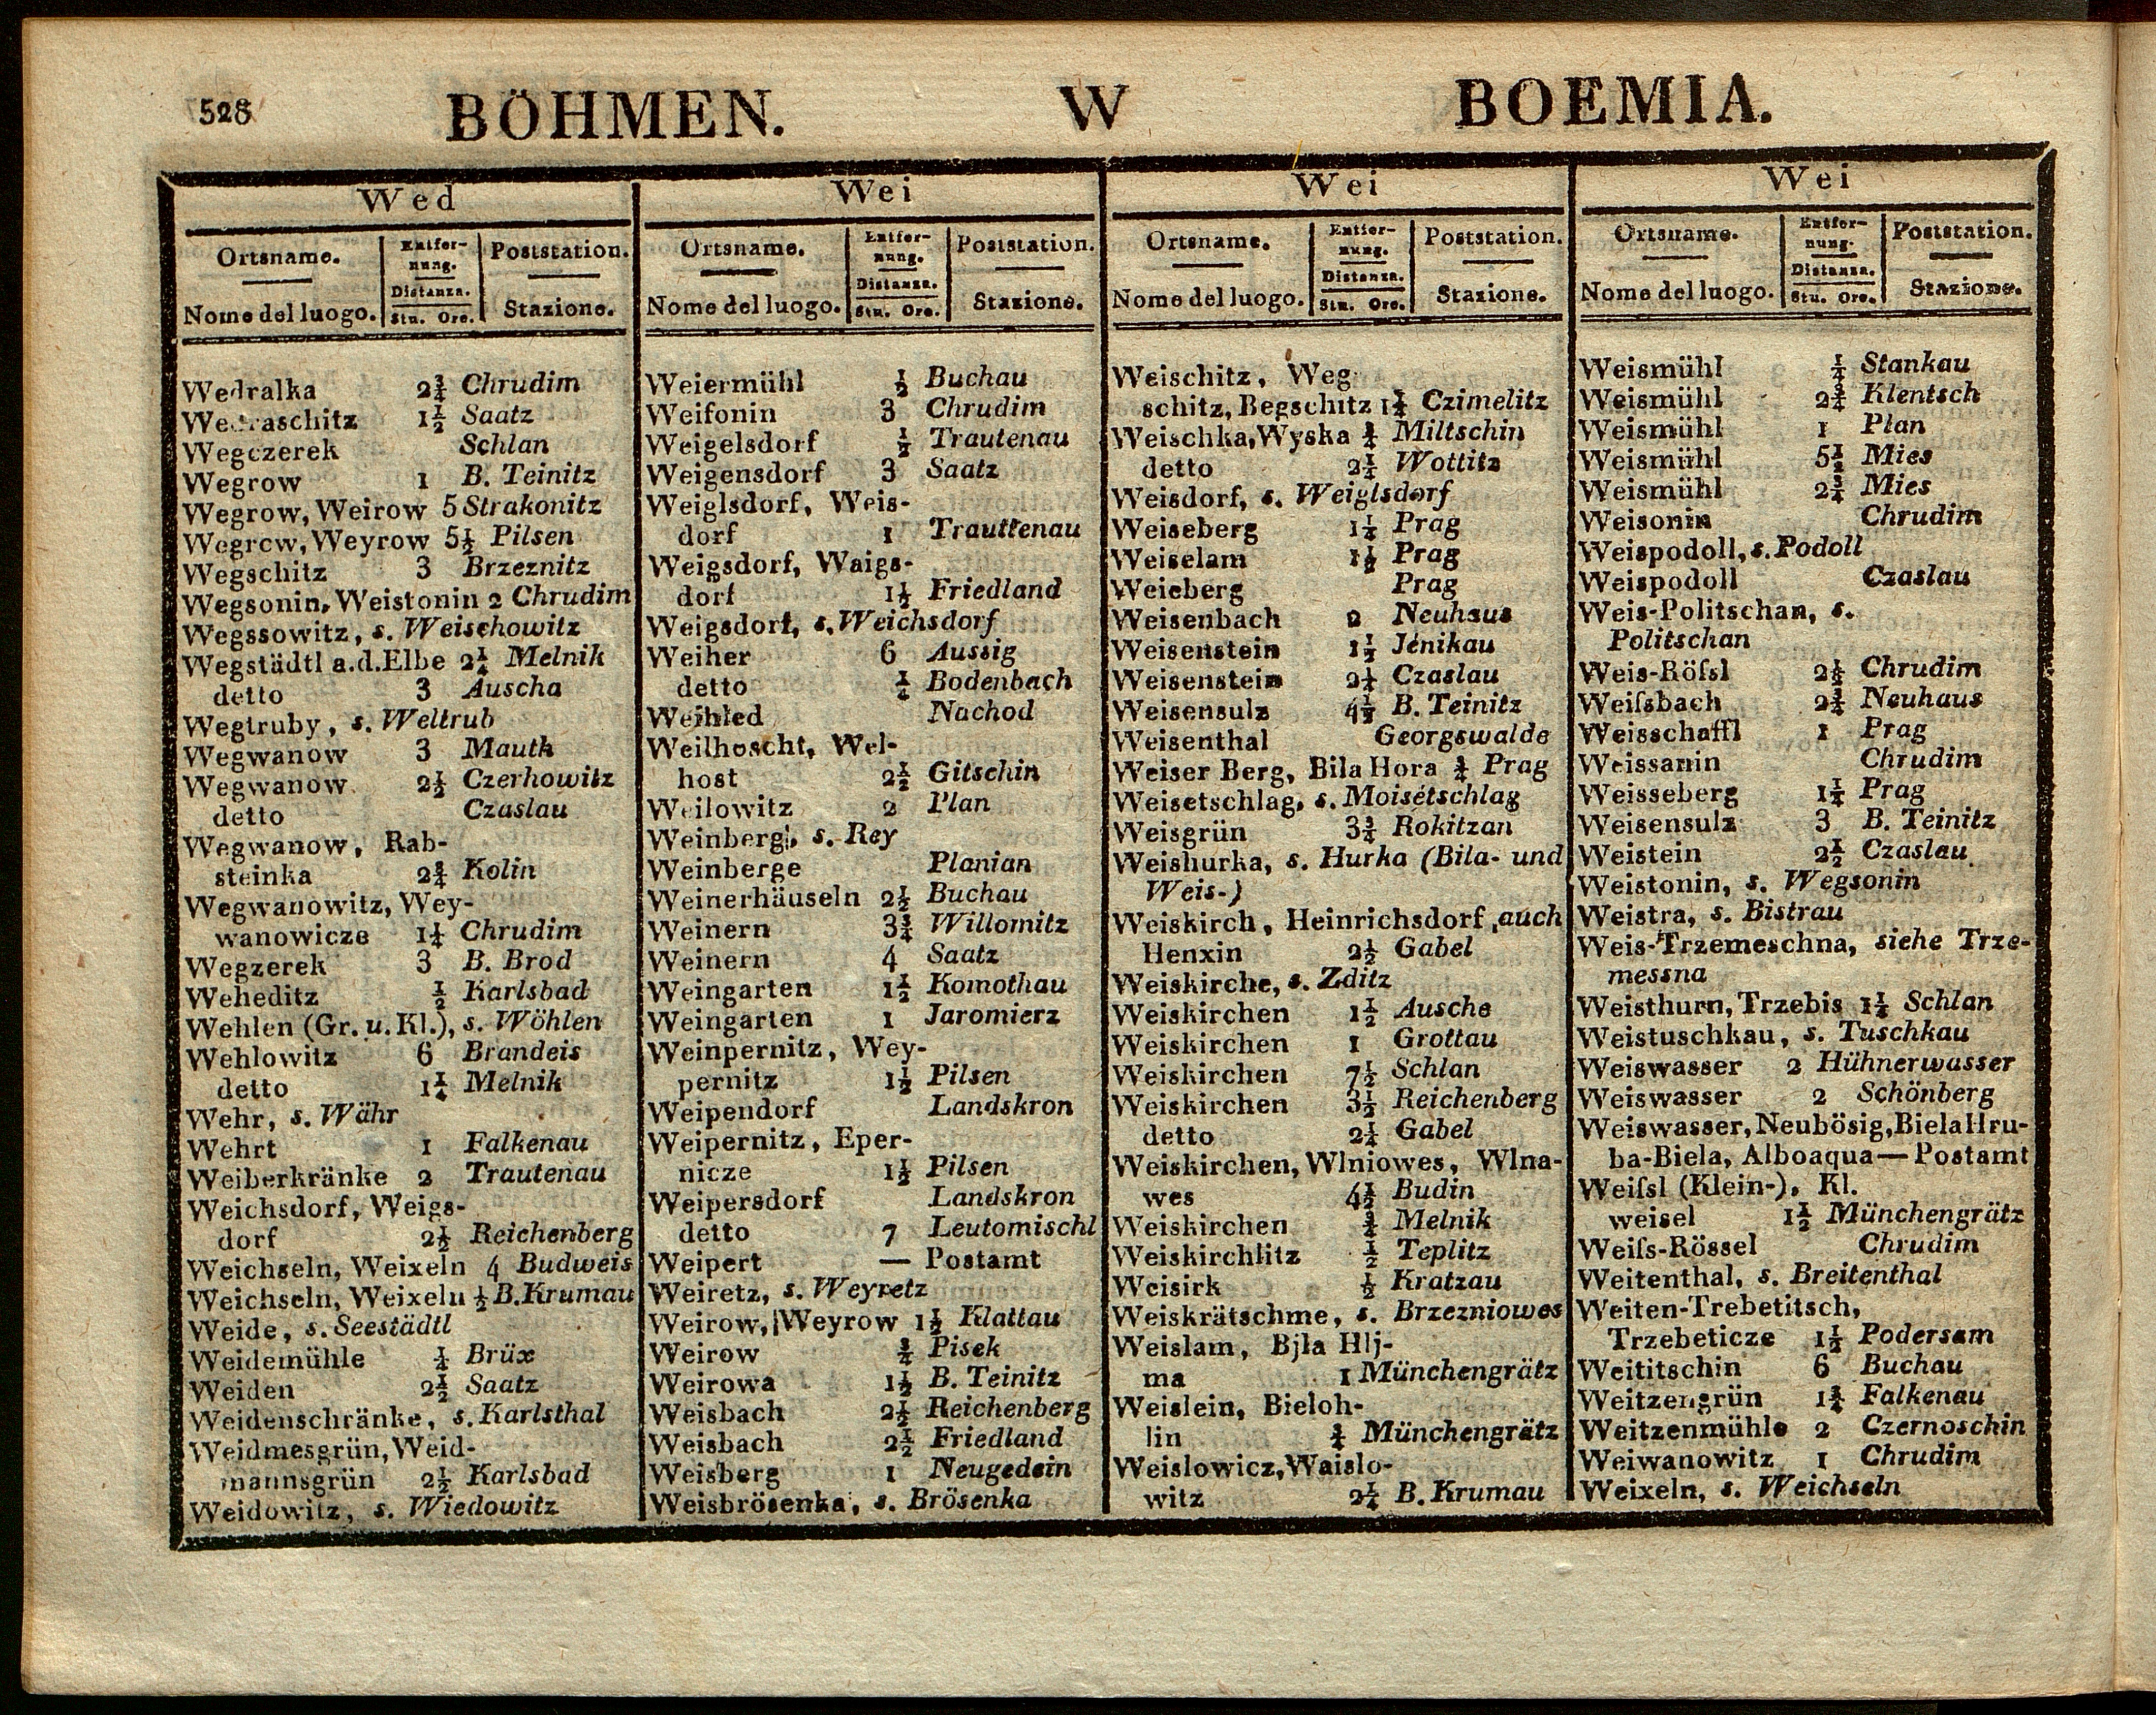 528 BÖHMEN. W BOEMIA.
Wed
Ortsname. Entfernung. Poststation.
Nome del luogo. Distanza. Stu. Ore. Stazione.
Wedralka 2¾ Chrudim
We..raschitz 1½ Saatz
Wegczerek Schlan
Wegrow 1 B. Teinitz
Wegrow, Weirow 5 Strakonitz
Wegrow, Weyrow 5½ Pilsen
Wegschitz 3 Brzeznitz
Wegsonin, Weistonin 2 Chrudim
Wegssowitz, s. Weischowitz
Wegstädtl a.d.Elbe 2¼ Melnik
detto 3 Auscha
Wegtruby, s. Weltrub
Wegwanow 3 Mauth
Wegwanow 2½ Czerhowitz
detto Czaslau
Wegwanow, Rab-
steinka 2¾ Kolin
Wegwanowitz, Wey-
wanowicze 1¼ Chrudim
Wegzerek 3 B. Brod
Weheditz ½ Karlsbad
Wehlen (Gr. u. Kl.), s. Wöhlen
Wehlowitz 6 Brandeis
detto 1¼ Melnik
Wehr, s. Währ
Wehrt 1 Falkenau
Weiberkränke 2 Trautenau
Weichsdorf, Weigs-
dorf 2½ Reichenberg
Weichseln, Weixeln 4 Budweis
Weichseln, Weixeln ½ B. Krumau
Weide, s. Seestädtl
Weidemühle ¼ Brüx
Weiden 2½ Saatz
Weidenschränke, s. Karlsthal
Weidmesgrün, Weid-
mannsgrün 2½ Karlsbad
Weidowitz, s. Wiedowitz
Wei
Ortsname. Entfernung. Poststation.
Nome del luogo. Distanza. Stu. Ore. Stazione.
Weiermühl ½ Buchau
Weifonin 3 Chrudim
Weigelsdorf ½ Trautenau
Weigensdorf 3 Saatz
Weiglsdorf, Weis-
dorf 1 Trauttenau
Weigsdorf, Waigs-
dorf 1½ Friedland
Weigsdorf, s. Weichsdorf
Weiher 6 Aussig
detto ¼ Bodenbach
Weihled Nachod
Weilhoscht, Wel-
host 2½ Gitschin
Weilowitz 2 Plan
Weinberg, s. Rey
Weinberge Planian
Weinerhäuseln 2½ Buchau
Weinern 3¾ Willomitz
Weinern 4 Saatz
Weingarten 1½ Komothau
Weingarten 1 Jaromierz
Weinpernitz, Wey-
pernitz 1½ Pilsen
Weipendorf Landskron
Weipernitz, Eper-
nicze 1½ Pilsen
Weipersdorf Landskron
detto 7 Leutomischl
Weipert — Postamt
Weiretz, s. Weyretz
Weirow, Weyrow 1½ Klattau
Weirow ¾ Pisek
Weirowa 1½ B. Teinitz
Weisbach 2½ Reichenberg
Weisbach 2½ Friedland
Weisberg 1 Neugedein
Weisbrösenka, s. Brösenka
Wei
Ortsname. Entfernung. Poststation.
Nome del luogo. Distanza. Stu. Ore. Stazione.
Weischitz, Weg-
schitz, Begschitz 1¾ Czimelitz
Weischka, Wyska ¾ Miltschin
detto 2¼ Wottitz
Weisdorf, s. Weiglsdorf
Weiseberg 1¼ Prag
Weiselam 1½ Prag
Weieberg Prag
Weisenbach 2 Neuhaus
Weisenstein 1½ Jénikau
Weisenstein 2¼ Czaslau
Weisensulz 4½ B. Teinitz
Weisenthal Georgswalde
Weiser Berg, Bila Hora ¾ Prag
Weisetschlag, s. Moisétschlag
Weisgrün 3¾ Rokitzan
Weishurka, s. Hurka (Bila- und
Weis-)
Weiskirch, Heinrichsdorf, auch
Henxin 2½ Gabel
Weiskirche, s. Zditz
Weiskirchen 1½ Ausche
Weiskirchen 1 Grottau
Weiskirchen 7½ Schlan
Weiskirchen 3½ Reichenberg
detto 2¼ Gabel
Weiskirchen, Wlniowes, Wlna-
wes 4½ Budin
Weiskirchen ¾ Melnik
Weiskirchlitz ½ Teplitz
Weisirk ½ Kratzau
Weiskrätschme, s. Brzezniowes
Weislam, Bjla Hlj-
ma 1 Münchengrätz
Weislein, Bieloh-
lin ¾ Münchengrätz
Weislowicz, Waislo-
witz 2¼ B. Krumau
Wei
Ortsname. Entfernung. Poststation.
Nome del luogo. Distanza. Stu. Ore. Stazione.
Weismühl ¼ Stankau
Weismühl 2¾ Klentsch
Weismühl 1 Plan
Weismühl 5½ Mies
Weismühl 2¾ Mies
Weisonin Chrudim
Weispodoll, s. Podoll
Weispodoll Czaslau
Weis-Politschan, s.
Politschan
Weis-Röſsl 2½ Chrudim
Weiſsbach 2¾ Neuhaus
Weisschaffl 1 Prag
Weissanin Chrudim
Weisseberg 1¼ Prag
Weisensulz 3 B. Teinitz
Weistein 2½ Czaslau
Weistonin, s. Wegsonin
Weistra, s. Bistrau
Weis-Trzemeschna, siehe Trze-
messna
Weisthurn, Trzebis 1¼ Schlan
Weistuschkau, s. Tuschkau
Weiswasser 2 Hühnerwasser
Weiswasser 2 Schönberg
Weiswasser, Neubösig, Biela Hru-
ba-Biela, Alboaqua — Postamt
Weiſsl (Klein-), Kl.
weisel 1½ Münchengrätz
Weiſs-Rössel Chrudim
Weitenthal, s. Breitenthal
Weiten-Trebetitsch,
Trzebeticze 1½ Podersam
Weititschin 6 Buchau
Weitzengrün 1¾ Falkenau
Weitzenmühle 2 Czernoschin
Weiwanowitz 1 Chrudim
Weixeln, s. Weichseln